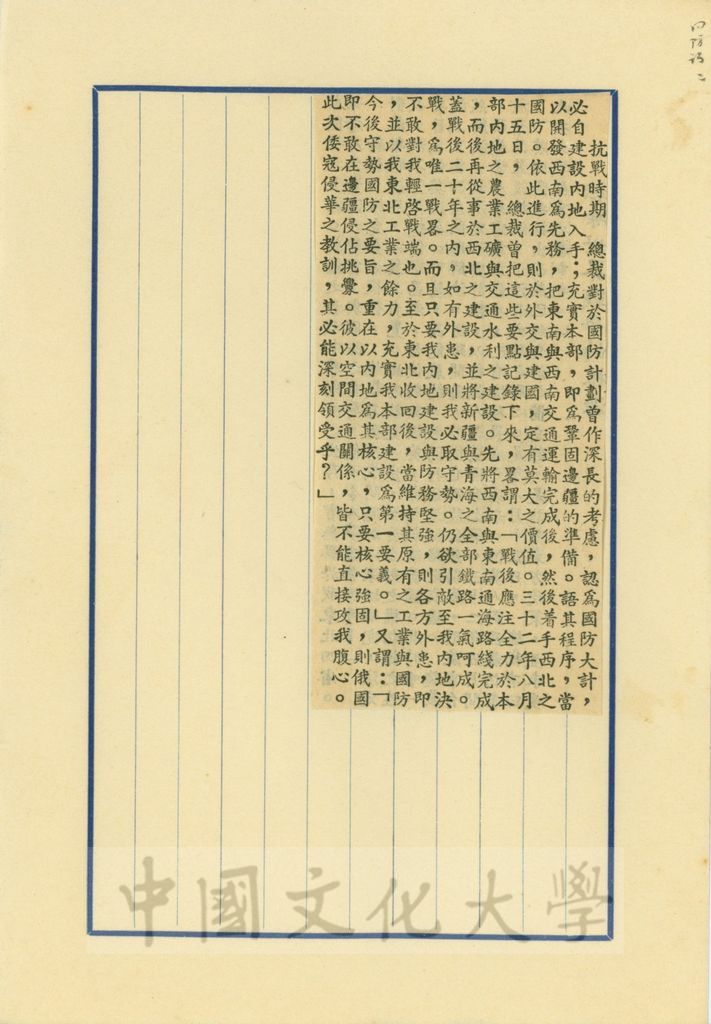 抗戰時期　總裁對於國防計劃曾作深長的考慮，認爲國防大計，
必自建設內地入手；充實本部，即爲鞏固邊疆的準備。語其程序，當
以開發西南爲先務，把東南與西南交通運輸完成後，然後着手西北之
國防。依此進行，則於外交與建國，定有莫大之價值。三十二年八月
十五日，　總裁曾把這些要點記錄下來，畧謂：「戰後應注全力於本
部內地之農業工礦與交通水利之建設。先將西南與東南通海路綫完成
，而後再從事於西北之建設，並將新疆與青海之全部鐵路一氣呵成。
蓋戰後二十年之內，如有外患，則我必取守勢。仍欲引敵至我內地決
戰，爲唯一戰畧。而且只要我內地建設與防務堅強，則各方外患，即
不敢對我輕啓戰端也。至於東北收回後，當維持其原有之工業與國防
，並以我東北工業之餘力，充實我本部建設爲第一要義。」又謂：「
今後守勢國防之要旨，重在以內地爲其核心，只要核心強固，則俄國
即不敢在邊疆侵佔挑釁。彼以空間交通關係，皆不能直接攻我腹心。
此次倭寇侵華之教訓，其必能深刻領受乎？」
中國文化大學